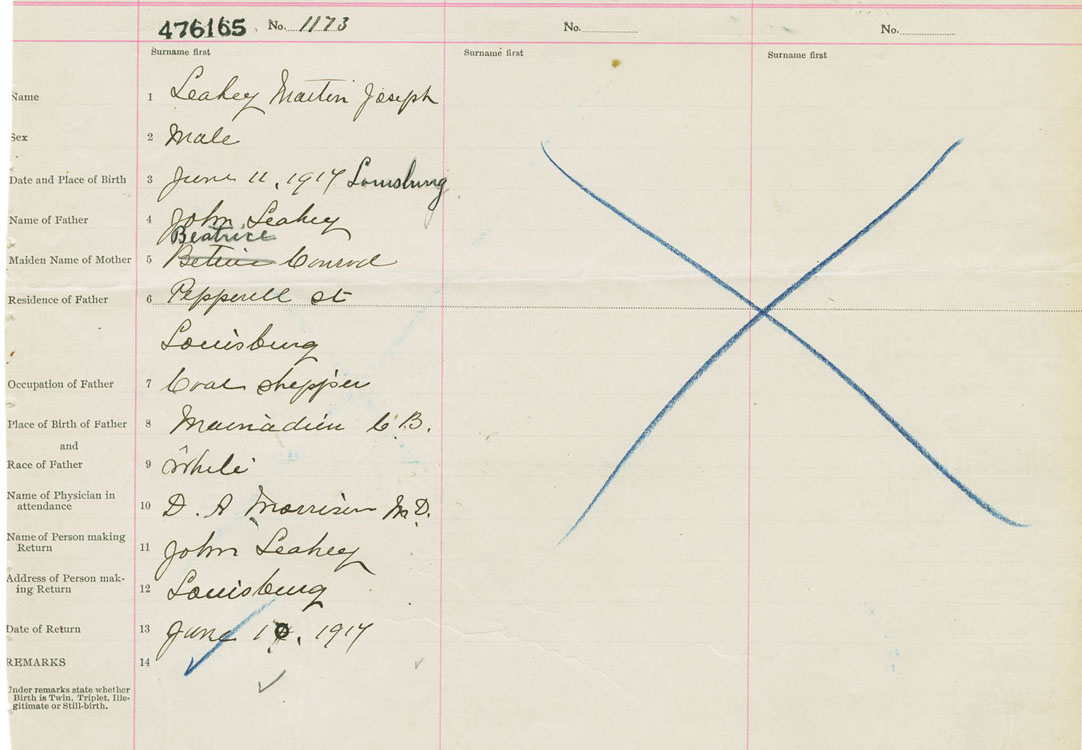 476165 No. 1173 No. No.
Surname first Surname first Surname first
Name 1 Leahey Martin Joseph
Sex 2 Male
Date and Place of Birth 3 June 11, 1917 Louisburg
Name of Father 4 John Leahey
Beatrice
Maiden Name of Mother 5 Conrod
Residence of Father 6 Pepperell st
Louisburg
Occupation of Father 7 Coal shipper
Place of Birth of Father 8 Mainadieu C.B.
and
Race of Father 9 White
Name of Physician in
attendance 10 D. A Morrison M.D.
Name of Person making
Return 11 John Leahey
Address of Person mak-
ing Return 12 Louisburg
Date of Return 13 June 1917
REMARKS 14
Under remarks state whether
Birth is Twin, Triplet, Ille-
gitimate or Still-birth.